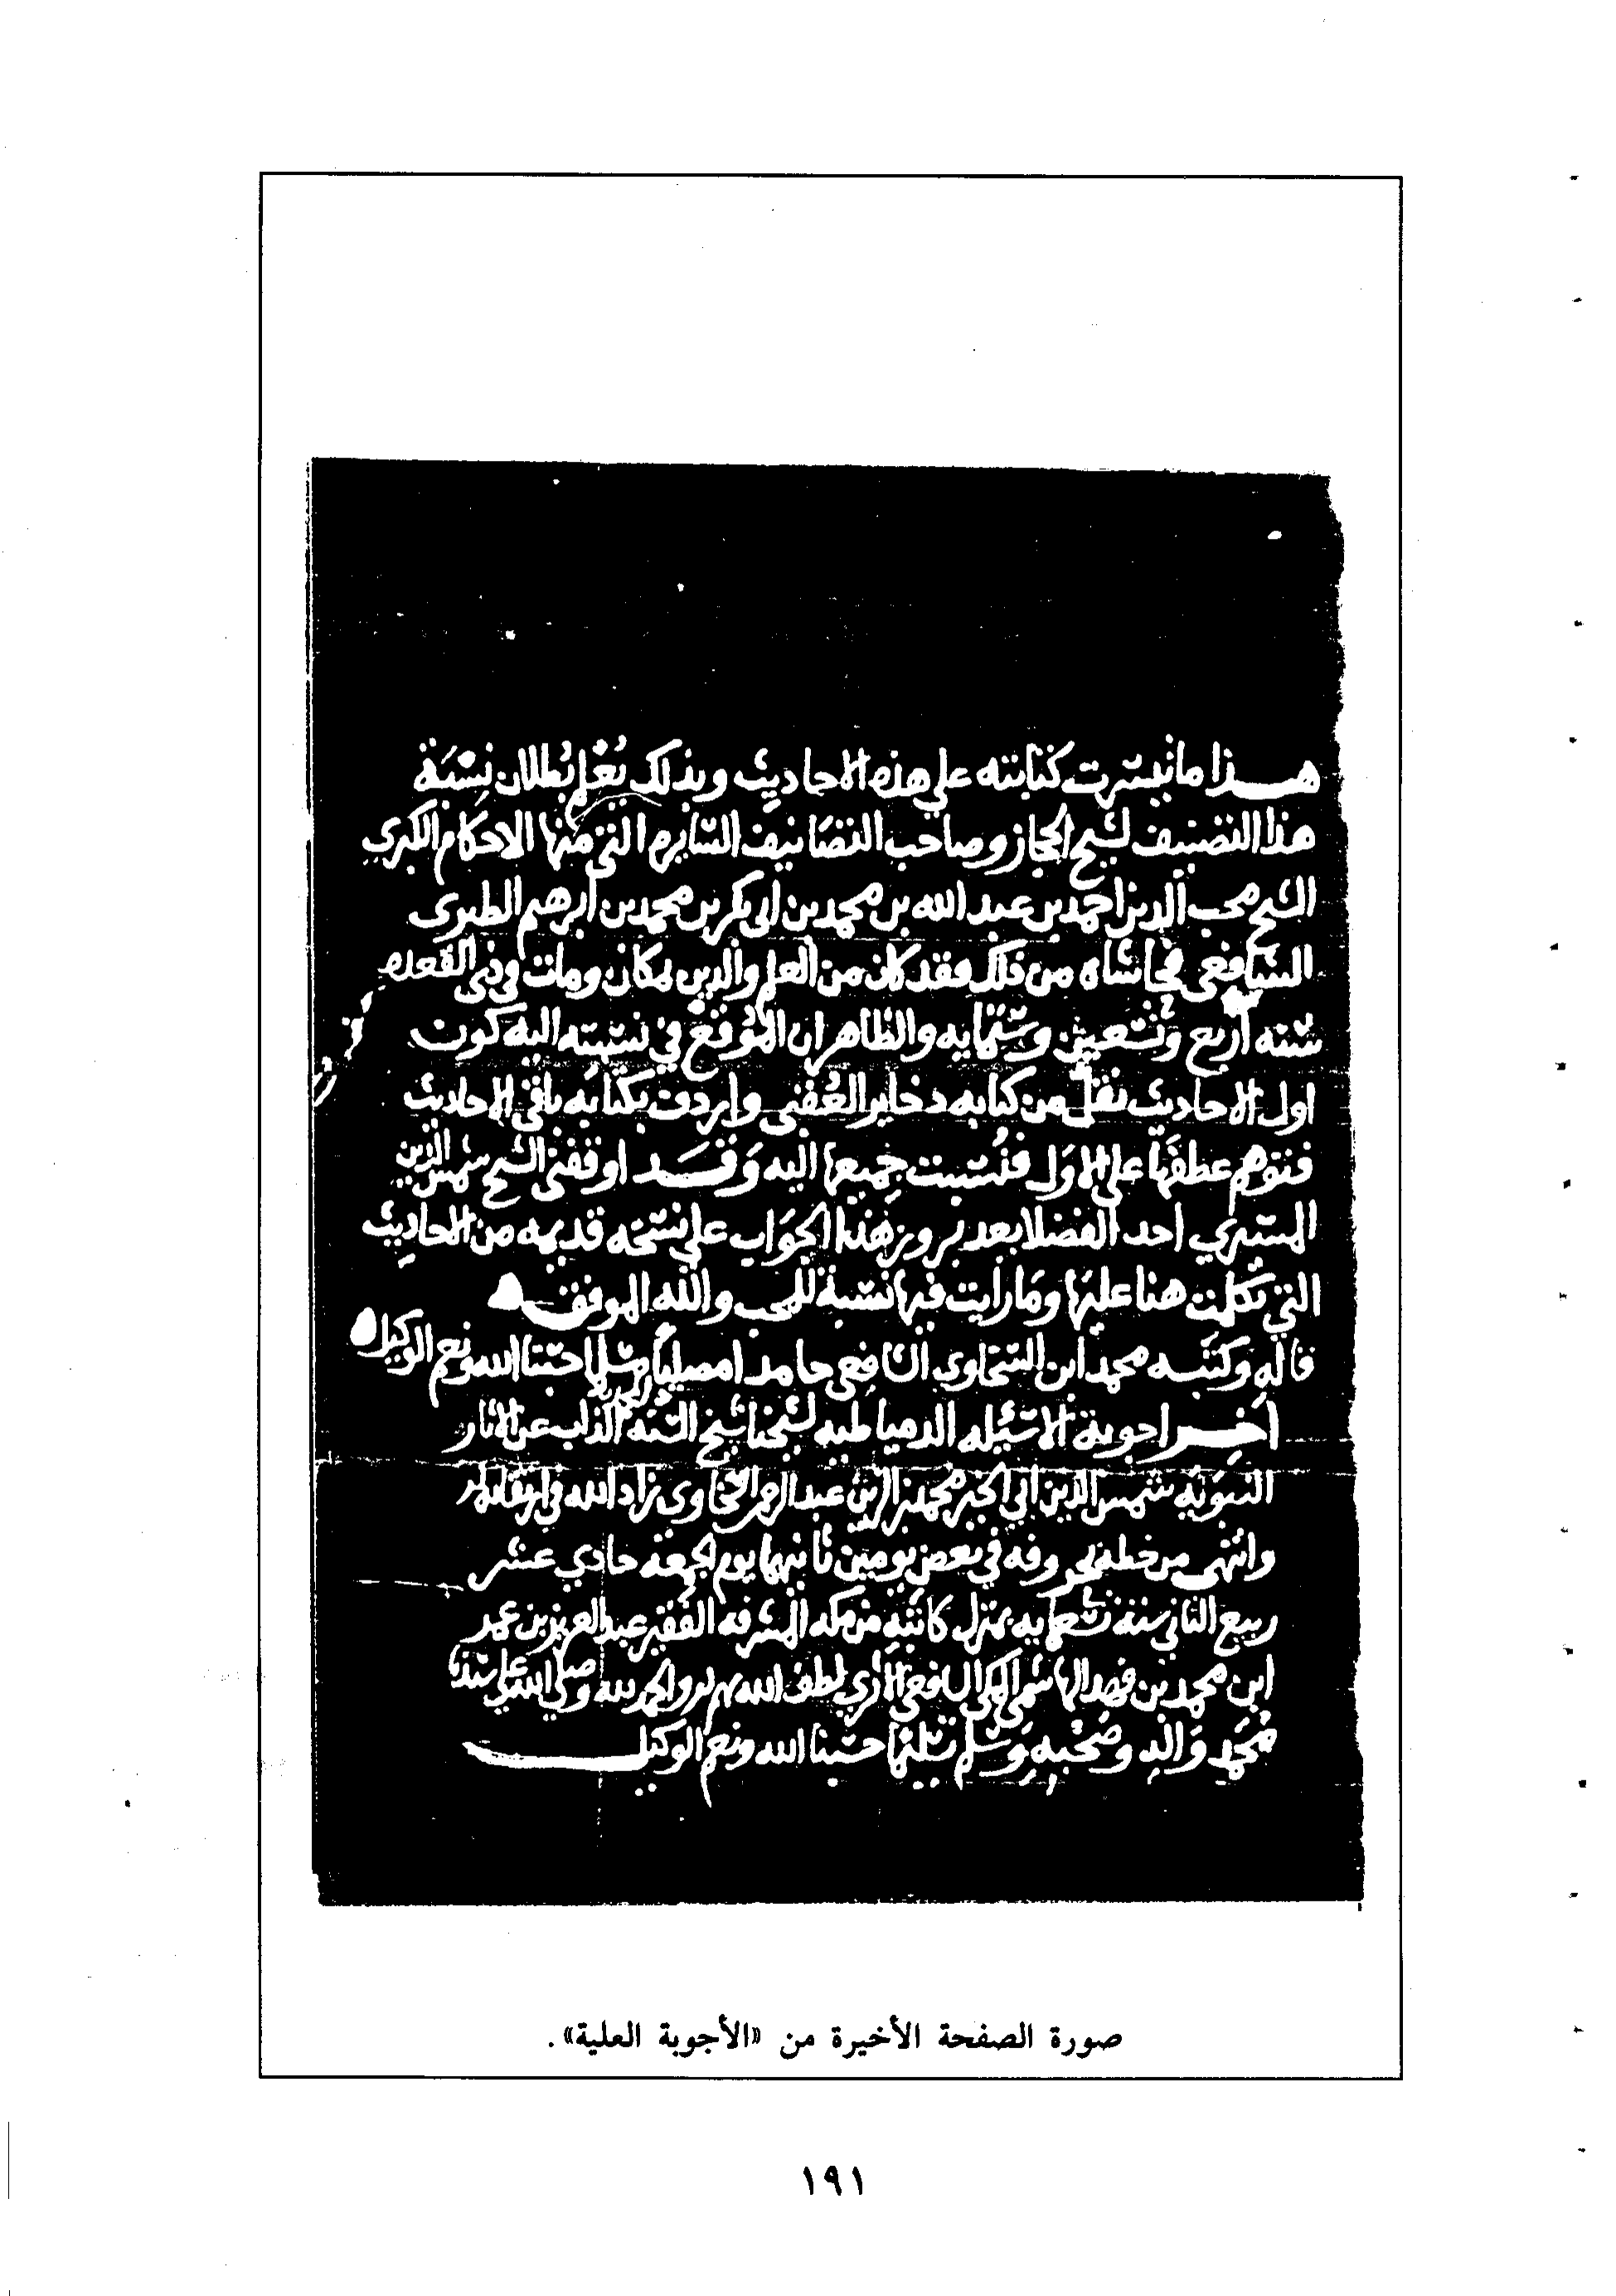 هـــذا ما تيسرت كتابته علي هذه الاحاديث وبذلك يُعْلم بُطلان نِسْبَة
هذا التصنيف لشيخ الحجاز وصاحب التصَانيف السَّايره التى منها الاحكام الكبري
الشيخ محب الدين احمد بن عبد الله بن محمد بن ابى بكر بن محمد بن ابرهيم الطبرى
الشافعى فحاشاه من ذلك فقد كان من العلم والدين بمكان ومات في ذى القعده
سنه أربع وتسعين وستمايه والظاهر ان المُوْقع في نسبته اليه كون
اول الاحاديث نقل من كتابه ذخاير العُقبى واردف بكتابه باقي الاحاديث
فتوهم عطفها على الاوَل فنُسبت جميعها اليه وَقَـــد اوقفنى الشيخ شمس الدين
احد الفضلا بعد بروز هذا الجوَاب علي نسخه قديمه من الاحاديث
التي تكلمت هنا عليها وَما رأيت فيها نسبة للمحب والله الموفق
قاله وكتبـــه محمد ابن السخاوي الشافعي حامدا مصلياً مسلما حسبنا الله ونعم الوكيل
آخـــر اجوبة الاسئله الدمياطيه لشيخنا شيخ السنه الذاب عن الاثار
النبَويّه شمس الدين ابي الخير محمد بن الزين عبد الرحمن السخاوى زاد الله في ارتقا
وانتهى من خطه في بعض يومين ثانيهما يوم الجمعه حادي عشر
ربيع الثاني سنة تسعمايه بمنزل كاتبه من مكه المشرفه الفقير عبد العزيز بن عمر
ابن محمد بن فهد الهاشمى المكى الشافعى الأثري لطف الله بهم والحمد لله وصلى الله على سيدنا
مُحَمد وَآله وصَحْبهِ وَسَلم تسليما حسْبنا الله ونعم الوكيل
صورة الصفحة الأخيرة من «الأجوبة العلية».
١٩١